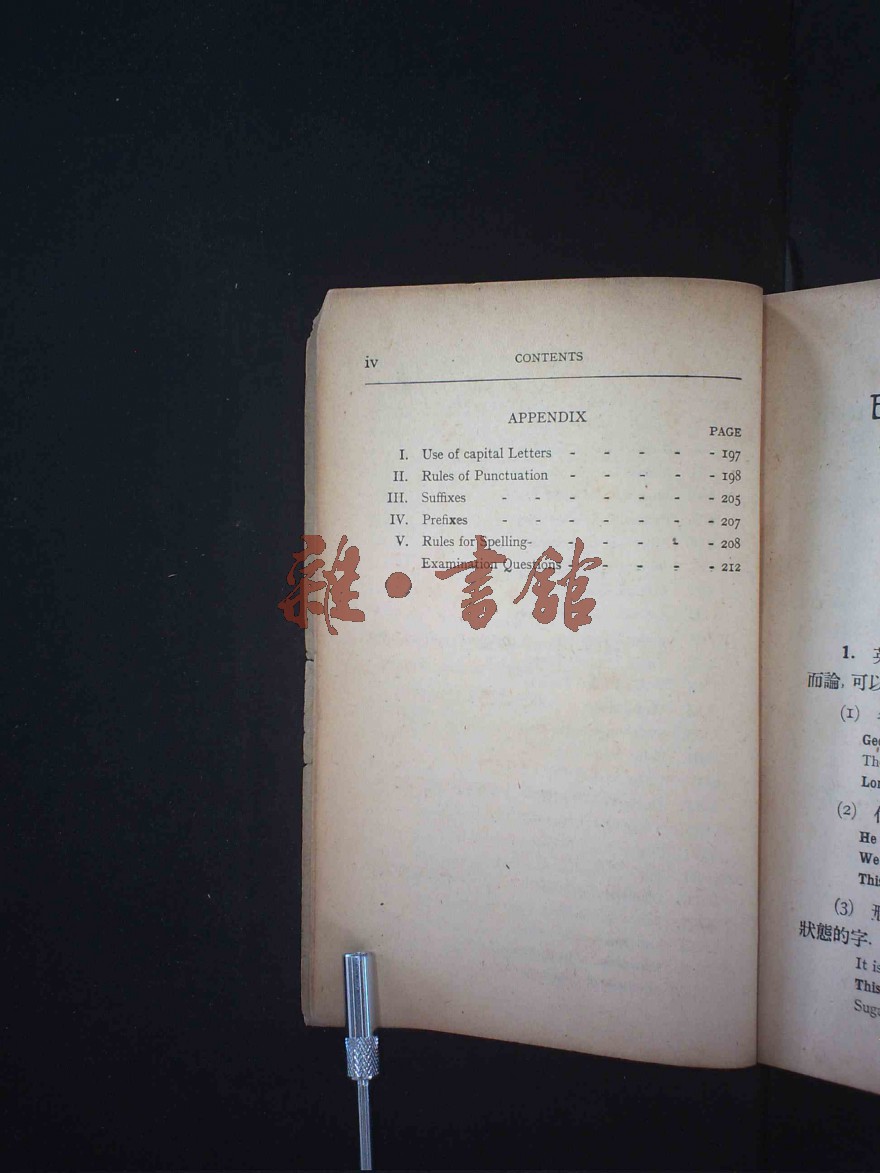 iv CONTENTS
APPENDIX
PAGE
I. Use of capital Letters - - - - - 197
II. Rules of Punctuation - - - - - 198
III. Suffixes - - - - - - - 205
IV. Prefixes - - - - - - - 207
V. Rules for Spelling- - - - - - 208
Examination Questions - - - - - 212
雜·書館
1.
而論, 可以
(1)
The
(2)
He
We
This
(3)
狀態的字.
It is
This